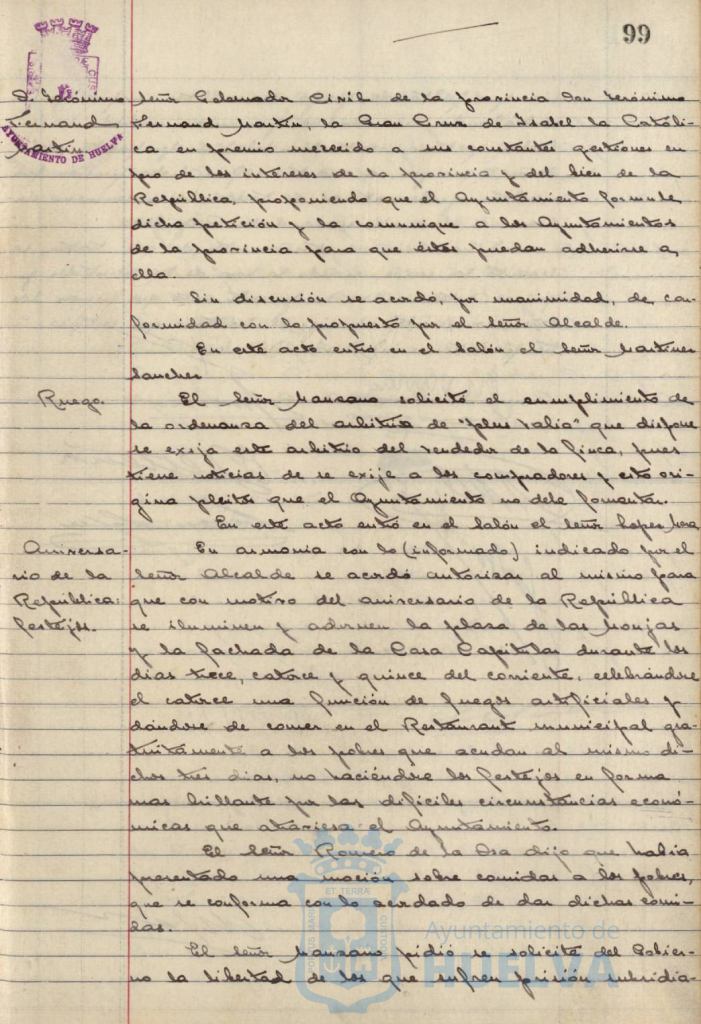 99
AYUNTAMIENTO DE HUELVA
D. Jerónimo
Fernand
Martín
señor Gobernador Civil de la provincia Don Jerónimo
Fernand Martín, la Gran Cruz de Isabel la Católi-
ca en premio merecido a sus constantes gestiones en
pro de los intereses de la provincia y del bien de la
República, proponiendo que el Ayuntamiento formule
dicha petición y la comunique a los Ayuntamientos
de la provincia para que éstos puedan adherirse a
ella.
Sin discusión se acordó, por unanimidad, de con-
formidad con lo propuesto por el señor Alcalde.
En este acto entró en el salón el señor Martínez
Sánchez
Ruego.
El señor Manzano solicitó el cumplimiento de
la ordenanza del arbitrio de "plus valía" que dispone
se exija este arbitrio del vendedor de la finca, pues
tiene noticias de se exije a los compradores y esto ori-
gina pleitos que el Ayuntamiento no debe fomentar.
En este acto entró en el salón el señor López
Aniversa-
rio de la
República:
festejos.
En armonía con lo (informado) indicado por el
señor Alcalde se acordó autorizar al mismo para
que con motivo del aniversario de la República
se iluminen y adornen la plaza de las Monjas
y la fachada de la Casa Capitular durante los
días trece, catorce y quince del corriente, celebrándose
el catorce una función de fuegos artificiales y
dándose de comer en el Restaurant municipal gra-
tuitamente a los pobres que acudan al mismo di-
chos tres días, no haciéndose los festejos en forma
mas brillante por las difíciles circunstancias econó-
micas que atraviesa el Ayuntamiento.
El señor Romero de la Osa dijo que había
presentado una moción sobre comidas a los pobres,
que se conforma con lo acordado de dar dichas comi-
das.
El señor Manzano pidió se solicite del Gobier-
no la libertad de los que sufren prisión subsidia-
Ayuntamiento de
HUELVA